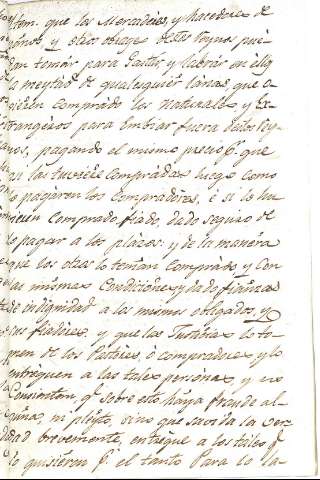 Item. que los Mercadéres, y hacedores de
y otros obrages destos Reynos pue-
dan tomár para gastár y labrár en ellos
la meytad de qualesquiér lanas que o-
vieren comprado los naturales y Ex-
trangéros para Embiar fuera destos Rey-
nos, pagando el mismo precio pr. que
las tuvieren compradas luego como
lo pagáren los Compradóres, é si lo hu-
vieren Comprado fiado, dado seguro de
lo pagar a los plázos: y de la manéra
que los otros lo tenían Compràdo y Con
las mismas Condiciónes y dado fianzas
de indignidad a los mismos obligados, y
sus fiadóres, y que las Justicias lo to-
men de los Pastóres, ó compradores y lo
entréguen a los tales persónas, y no
Consientan, qe. sobre esto haya fraude al-
guna, ni pleyto, sino que savida la ver-
dad brevemente, entregue a los tales qe.
lo quisiéren pr. el tanto Para lo la-